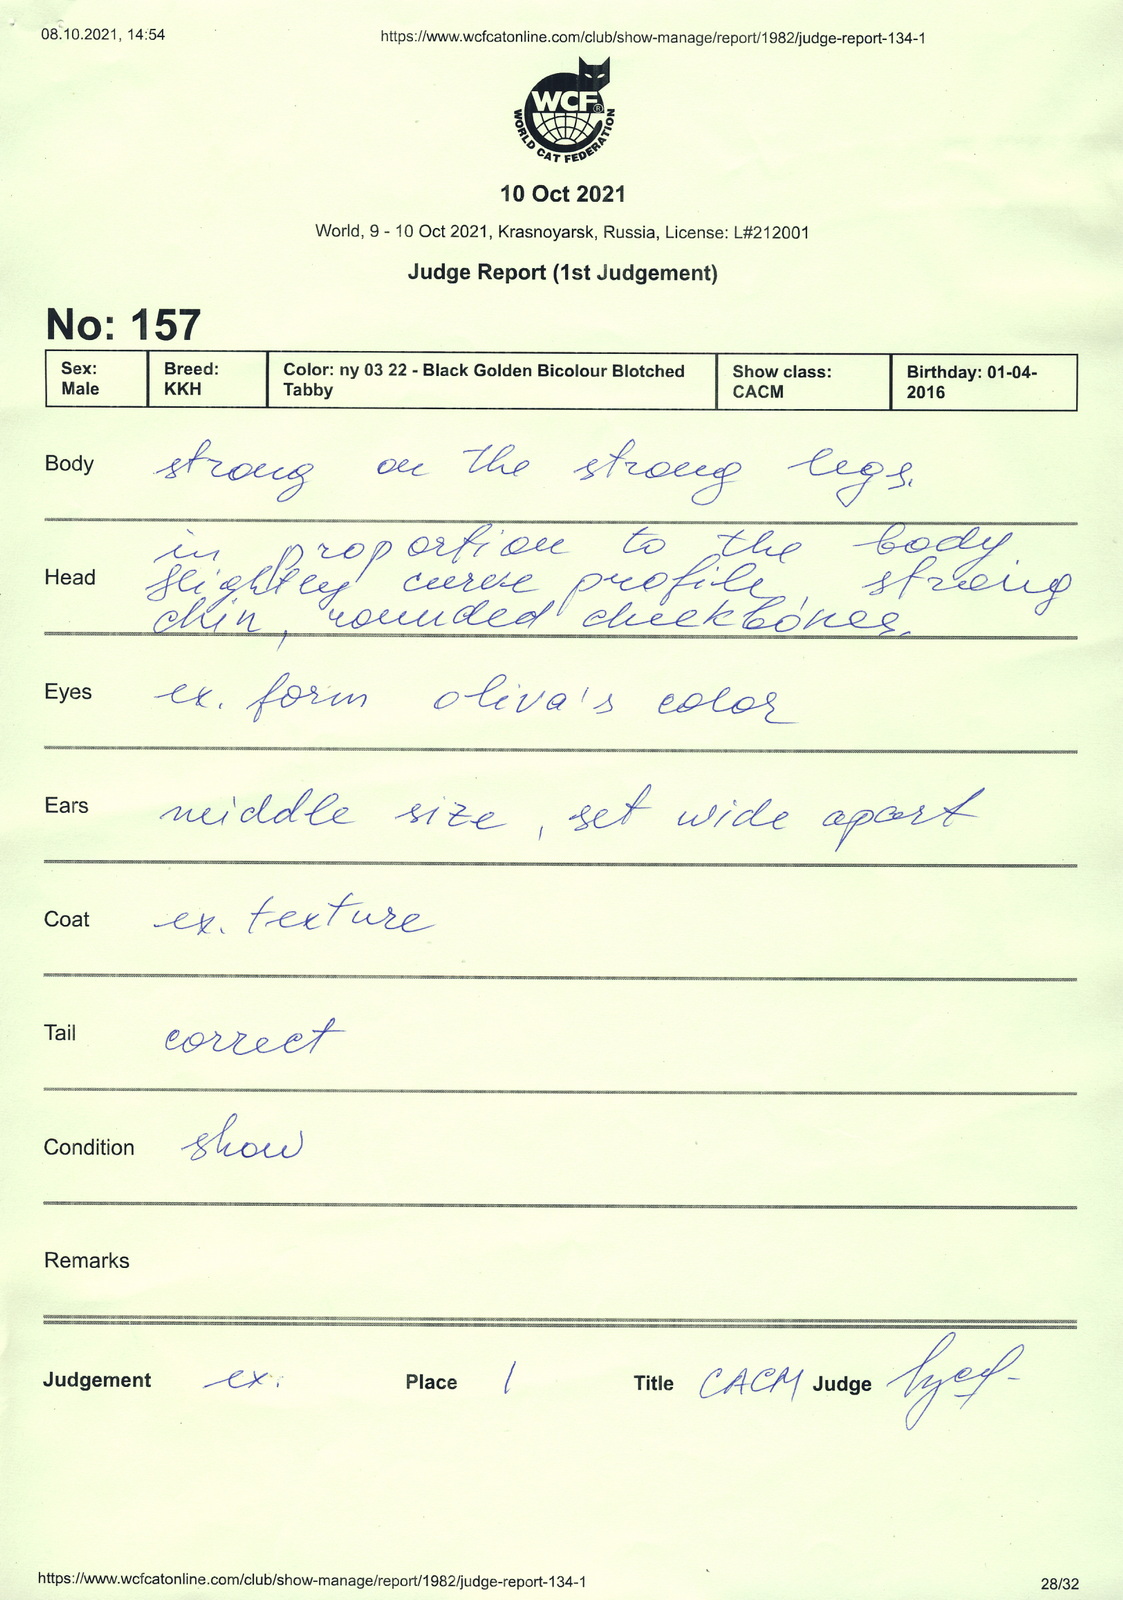 08.10.2021, 14:54 https://www.wcfcatonline.com/club/show-manage/report/1982/judge-report-134-1
WCF®
WORLD CAT FEDERATION
10 Oct 2021
World, 9 - 10 Oct 2021, Krasnoyarsk, Russia, License: L#212001
Judge Report (1st Judgement)
No: 157
Sex: Male
Breed: KKH
Color: ny 03 22 - Black Golden Bicolour Blotched
Tabby
Show class: CACM
Birthday: 01-04-
2016
Body strong on the strong legs.
in proportion to the body
Head slightly curve profile, strong
chin, rounded cheekbones.
Eyes ex. form oliva's color
Ears middle size, set wide apart
Coat ex. texture
Tail correct
Condition show
Remarks
Judgement ex. Place 1 Title CACM Judge
https://www.wcfcatonline.com/club/show-manage/report/1982/judge-report-134-1 28/32